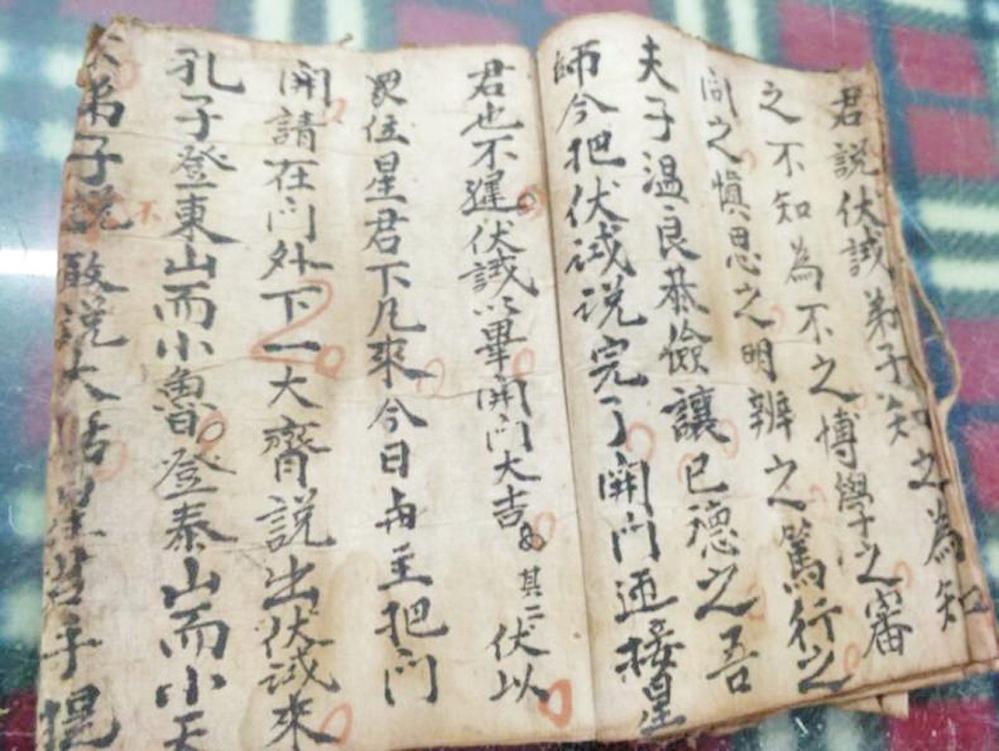 君説伏誡弟子知之為知
之不知為不之博學之審
问之慎思之明辨之篤行之
夫子温良恭儉讓已德之吾
師今把伏誡说完了開门迊接星
君也不遲伏誡以畢開门大吉 其二 伏以
眾位星君下凡來今日主把门
開請在门外下一大齊説出伏誡來
孔子登東山而小魯登泰山而小天
弟子説不敢説大星君手提